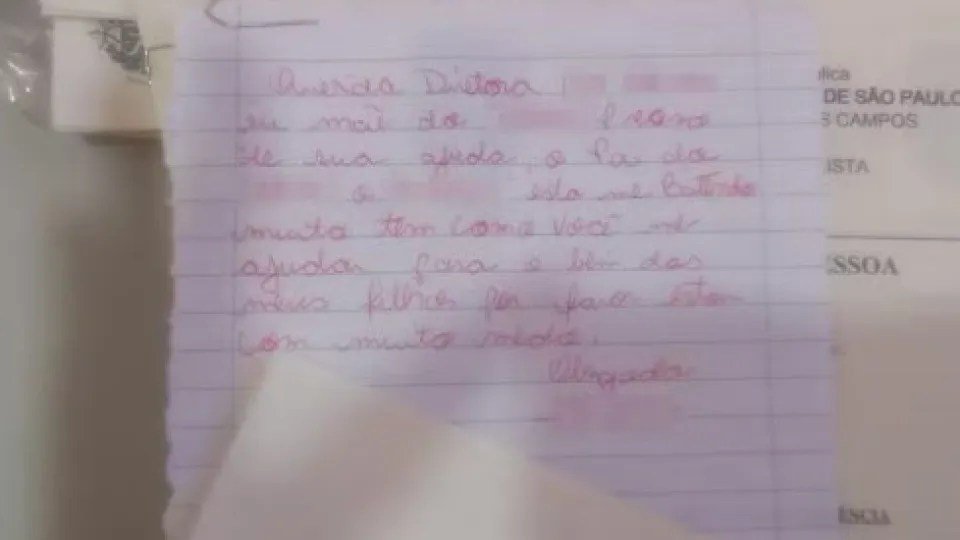 Querida Diretora
sou mãe da preciso
de sua ajuda, o pai da
e esta me Batendo
muito tem como você me
ajudar para o bem dos
meus filhos por favor estou
com muito medo.
Obrigada
ública
DE SÃO PAULO
S CAMPOS
ISTA
ESSOA
ÊNCIA